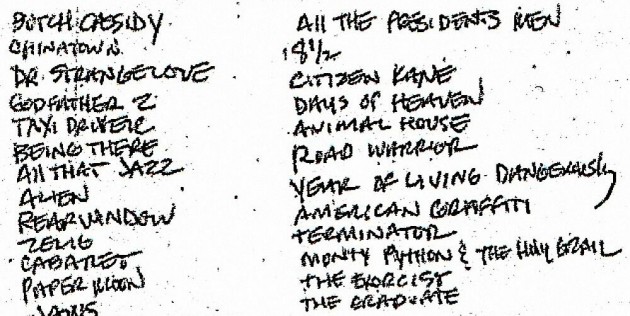 BUTCH CASSIDY
CHINATOWN
DR. STRANGELOVE
GODFATHER 2
TAXI DRIVER
BEING THERE
All THAT JAZZ
ALIEN
REARWINDOW
ZELIG
CABARET
PAPER MOON
JAWS
All THE PRESIDENTS MEN
8 1/2
CITIZEN KANE
DAYS OF HEAVEN
ANIMAL HOUSE
ROAD WARRIOR
YEAR OF LIVING DANGEROUSLY
AMERICAN GRAFFITI
TERMINATOR
MONTY PYTHON & THE HOLY GRAIL
THE EXORCIST
THE GRADUATE